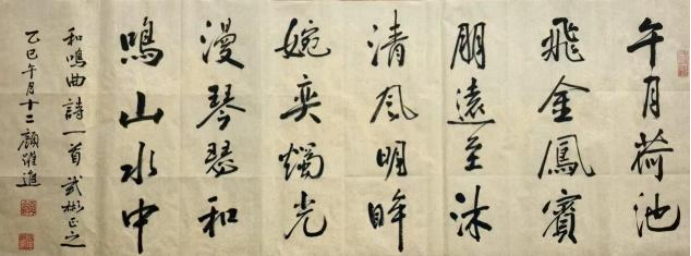 午月荷池
飛金鳳賓
朋遠至沐
清風明眸
婉奕燭光
漫琴瑟和
鳴山水中
和鳴曲詩一首 武彬正之
乙巳午月十二顏躍進